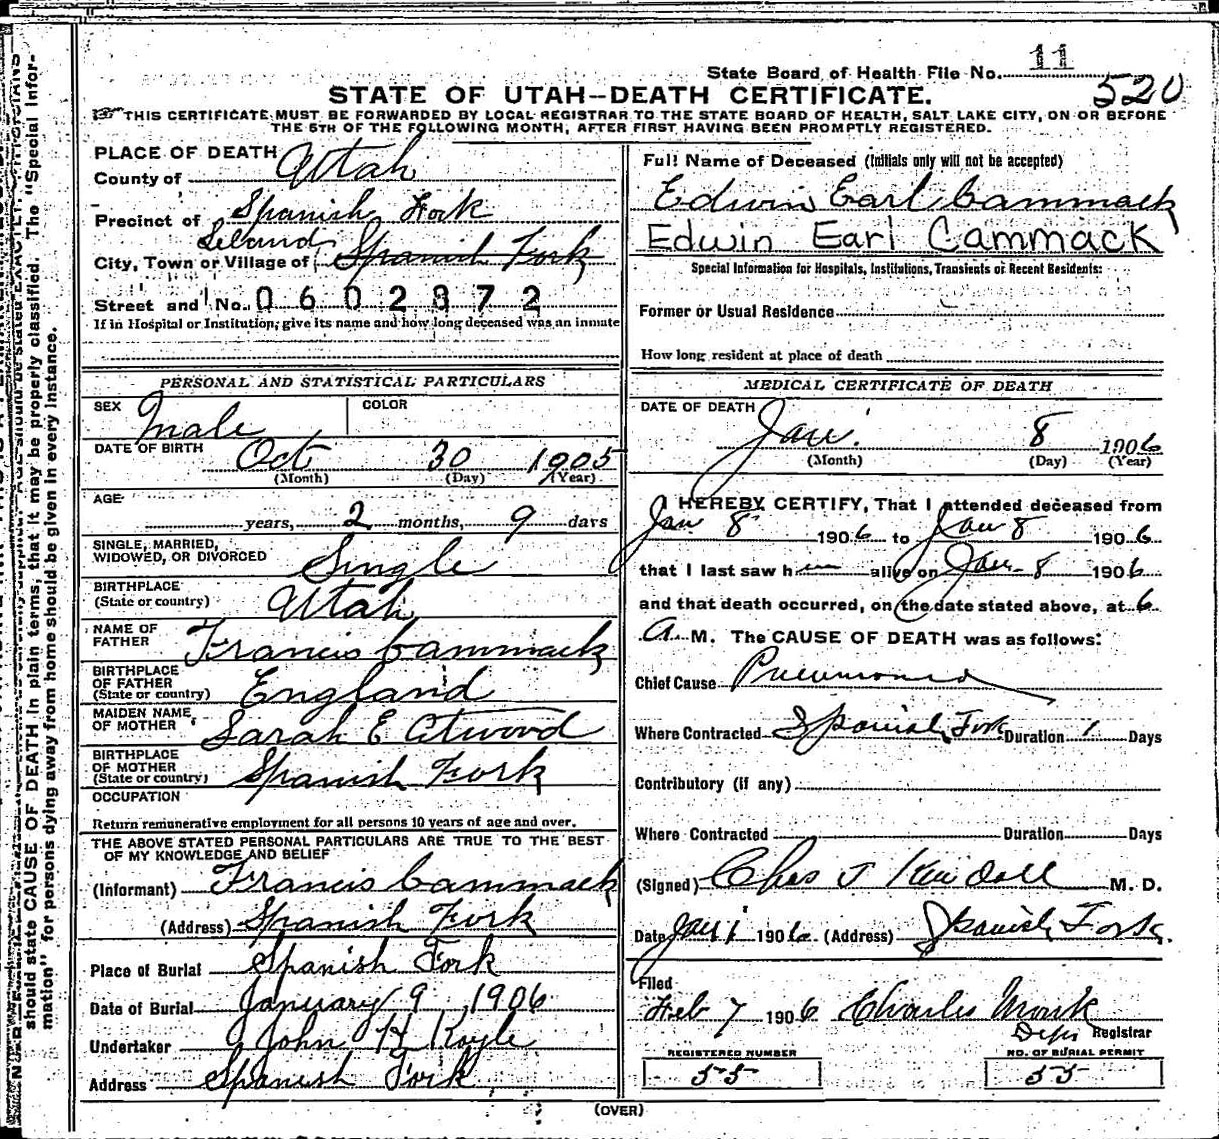 State Board of Health File No. 11
520
STATE OF UTAH—DEATH CERTIFICATE.
☞ THIS CERTIFICATE MUST BE FORWARDED BY LOCAL REGISTRAR TO THE STATE BOARD OF HEALTH, SALT LAKE CITY, ON OR BEFORE
THE 5TH OF THE FOLLOWING MONTH, AFTER FIRST HAVING BEEN PROMPTLY REGISTERED.
PLACE OF DEATH
County of Utah
Precinct of Spanish Fork
Leland
City, Town or Village of Spanish Fork
Street and No. 0602372
If in Hospital or Institution, give its name and how long deceased was an inmate
Full Name of Deceased (Initials only will not be accepted)
Edwin Earl Cammack
Edwin Earl Cammack
Special Information for Hospitals, Institutions, Transients or Recent Residents:
Former or Usual Residence
How long resident at place of death
PERSONAL AND STATISTICAL PARTICULARS
SEX Male COLOR
DATE OF BIRTH Oct 30 1905
(Month) (Day) (Year)
AGE
years, 2 months, 9 days
SINGLE, MARRIED,
WIDOWED, OR DIVORCED Single
BIRTHPLACE
(State or country) Utah
NAME OF
FATHER Francis Cammack
BIRTHPLACE
OF FATHER
(State or country) England
MAIDEN NAME
OF MOTHER Sarah E Atwood
BIRTHPLACE
OF MOTHER
(State or country) Spanish Fork
OCCUPATION
Return remunerative employment for all persons 10 years of age and over.
THE ABOVE STATED PERSONAL PARTICULARS ARE TRUE TO THE BEST
OF MY KNOWLEDGE AND BELIEF
(Informant) Francis Cammack
(Address) Spanish Fork
Place of Burial Spanish Fork
Date of Burial January 9, 1906
Undertaker John H Koyle
Address Spanish Fork
MEDICAL CERTIFICATE OF DEATH
DATE OF DEATH Jan. 8 1906
(Month) (Day) (Year)
I HEREBY CERTIFY, That I attended deceased from
Jan 8 1906 to Jan 8 1906
that I last saw him alive on Jan 8 1906
and that death occurred, on the date stated above, at 6
A M. The CAUSE OF DEATH was as follows:
Chief Cause Pneumonia
Where Contracted Spanish Fork Duration 1 Days
Contributory (if any)
Where Contracted Duration Days
(Signed) Chas J Kendall M. D.
Date Jan 1906 (Address) Spanish Fork.
Filed
Feb 7 1906 Charles Monk
Depu Registrar
REGISTERED NUMBER
55
NO. OF BURIAL PERMIT
55
(OVER)
should state CAUSE OF DEATH in plain terms, that it may be properly classified. The "Special Infor-
mation" for persons dying away from home should be given in every instance.